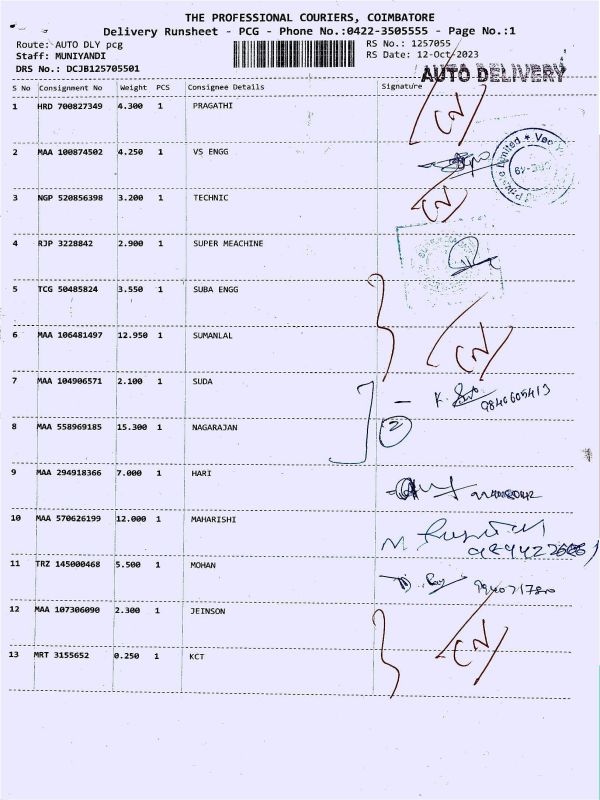 THE PROFESSIONAL COURIERS, COIMBATORE
Delivery Runsheet - PCG - Phone No.:0422-3505555 - Page No.:1
Route: AUTO DLY pcg RS No.: 1257055
Staff: MUNIYANDI RS Date: 12-Oct-2023
DRS No.: DCJB125705501
AUTO DELIVERY
S No Consignment No Weight PCS Consignee Details Signature
1 HRD 700827349 4.300 1 PRAGATHI
CN
2 MAA 100874502 4.250 1 VS ENGG
3 NGP 520856398 3.200 1 TECHNIC
CN
4 RJP 3228842 2.900 1 SUPER MEACHINE
5 TCG 50485824 3.550 1 SUBA ENGG
6 MAA 106481497 12.950 1 SUMANLAL
CN
7 MAA 104906571 2.100 1 SUDA
8 MAA 558969185 15.300 1 NAGARAJAN
2
9 MAA 294918366 7.000 1 HARI
10 MAA 570626199 12.000 1 MAHARISHI
11 TRZ 145000468 5.500 1 MOHAN
12 MAA 107306090 2.300 1 JEINSON
13 MRT 3155652 0.250 1 KCT
CN